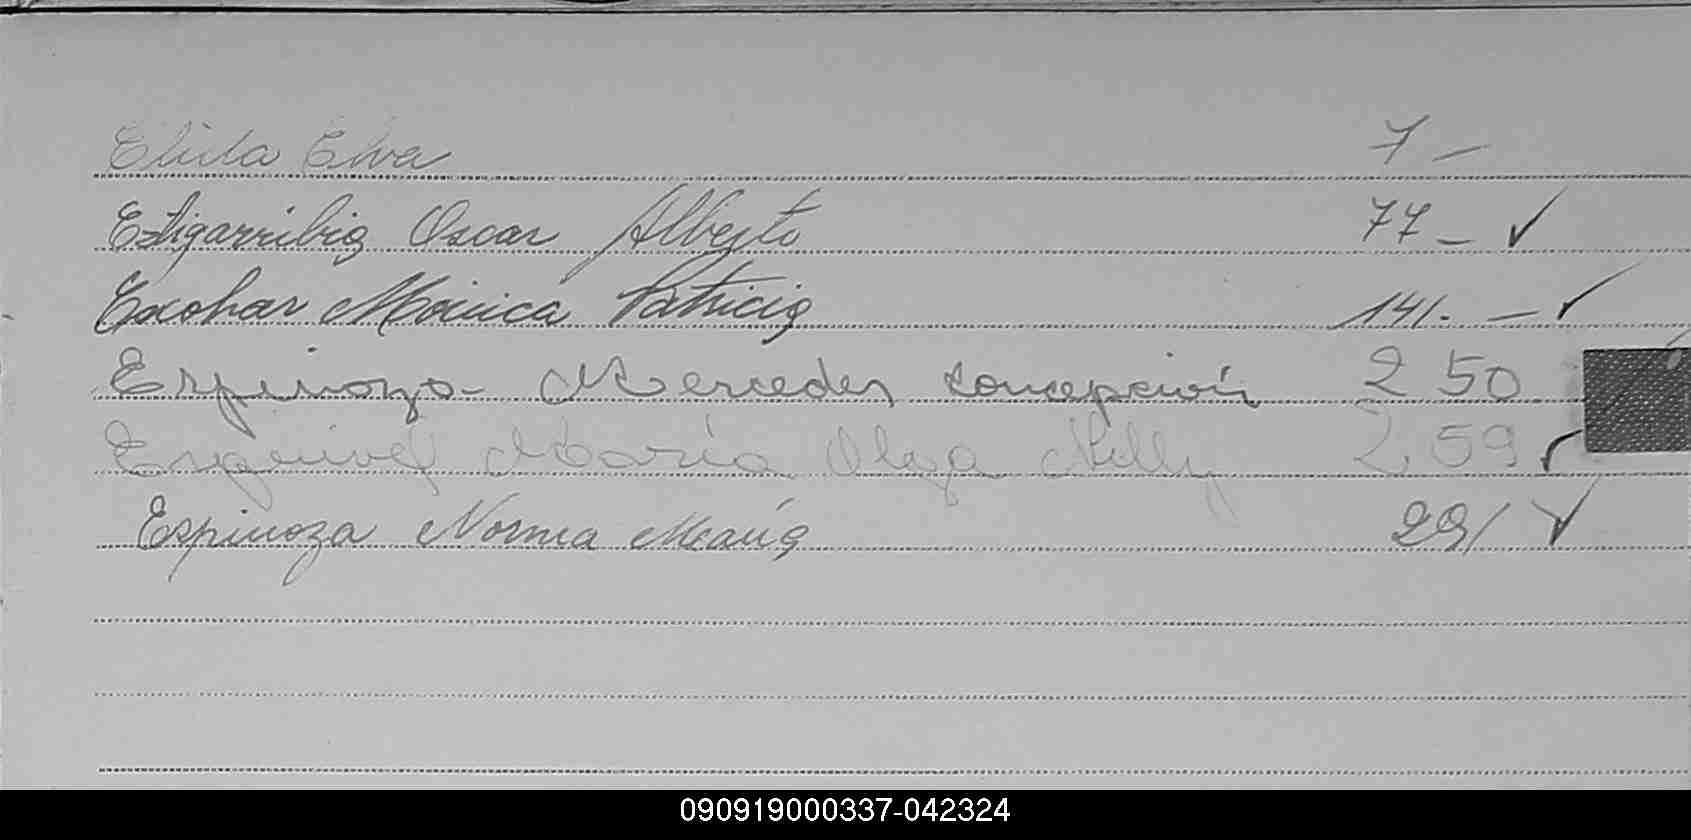 Elida Elva 7 -
Estigarribia Oscar Alberto 77 - ✓
Escobar Mónica Patricia 141. - ✓
Espinoza Mercedes Concepción 250
Esquivel María Olga Nilly 259 ✓
Espinoza Norma María 291 ✓
090919000337-042324